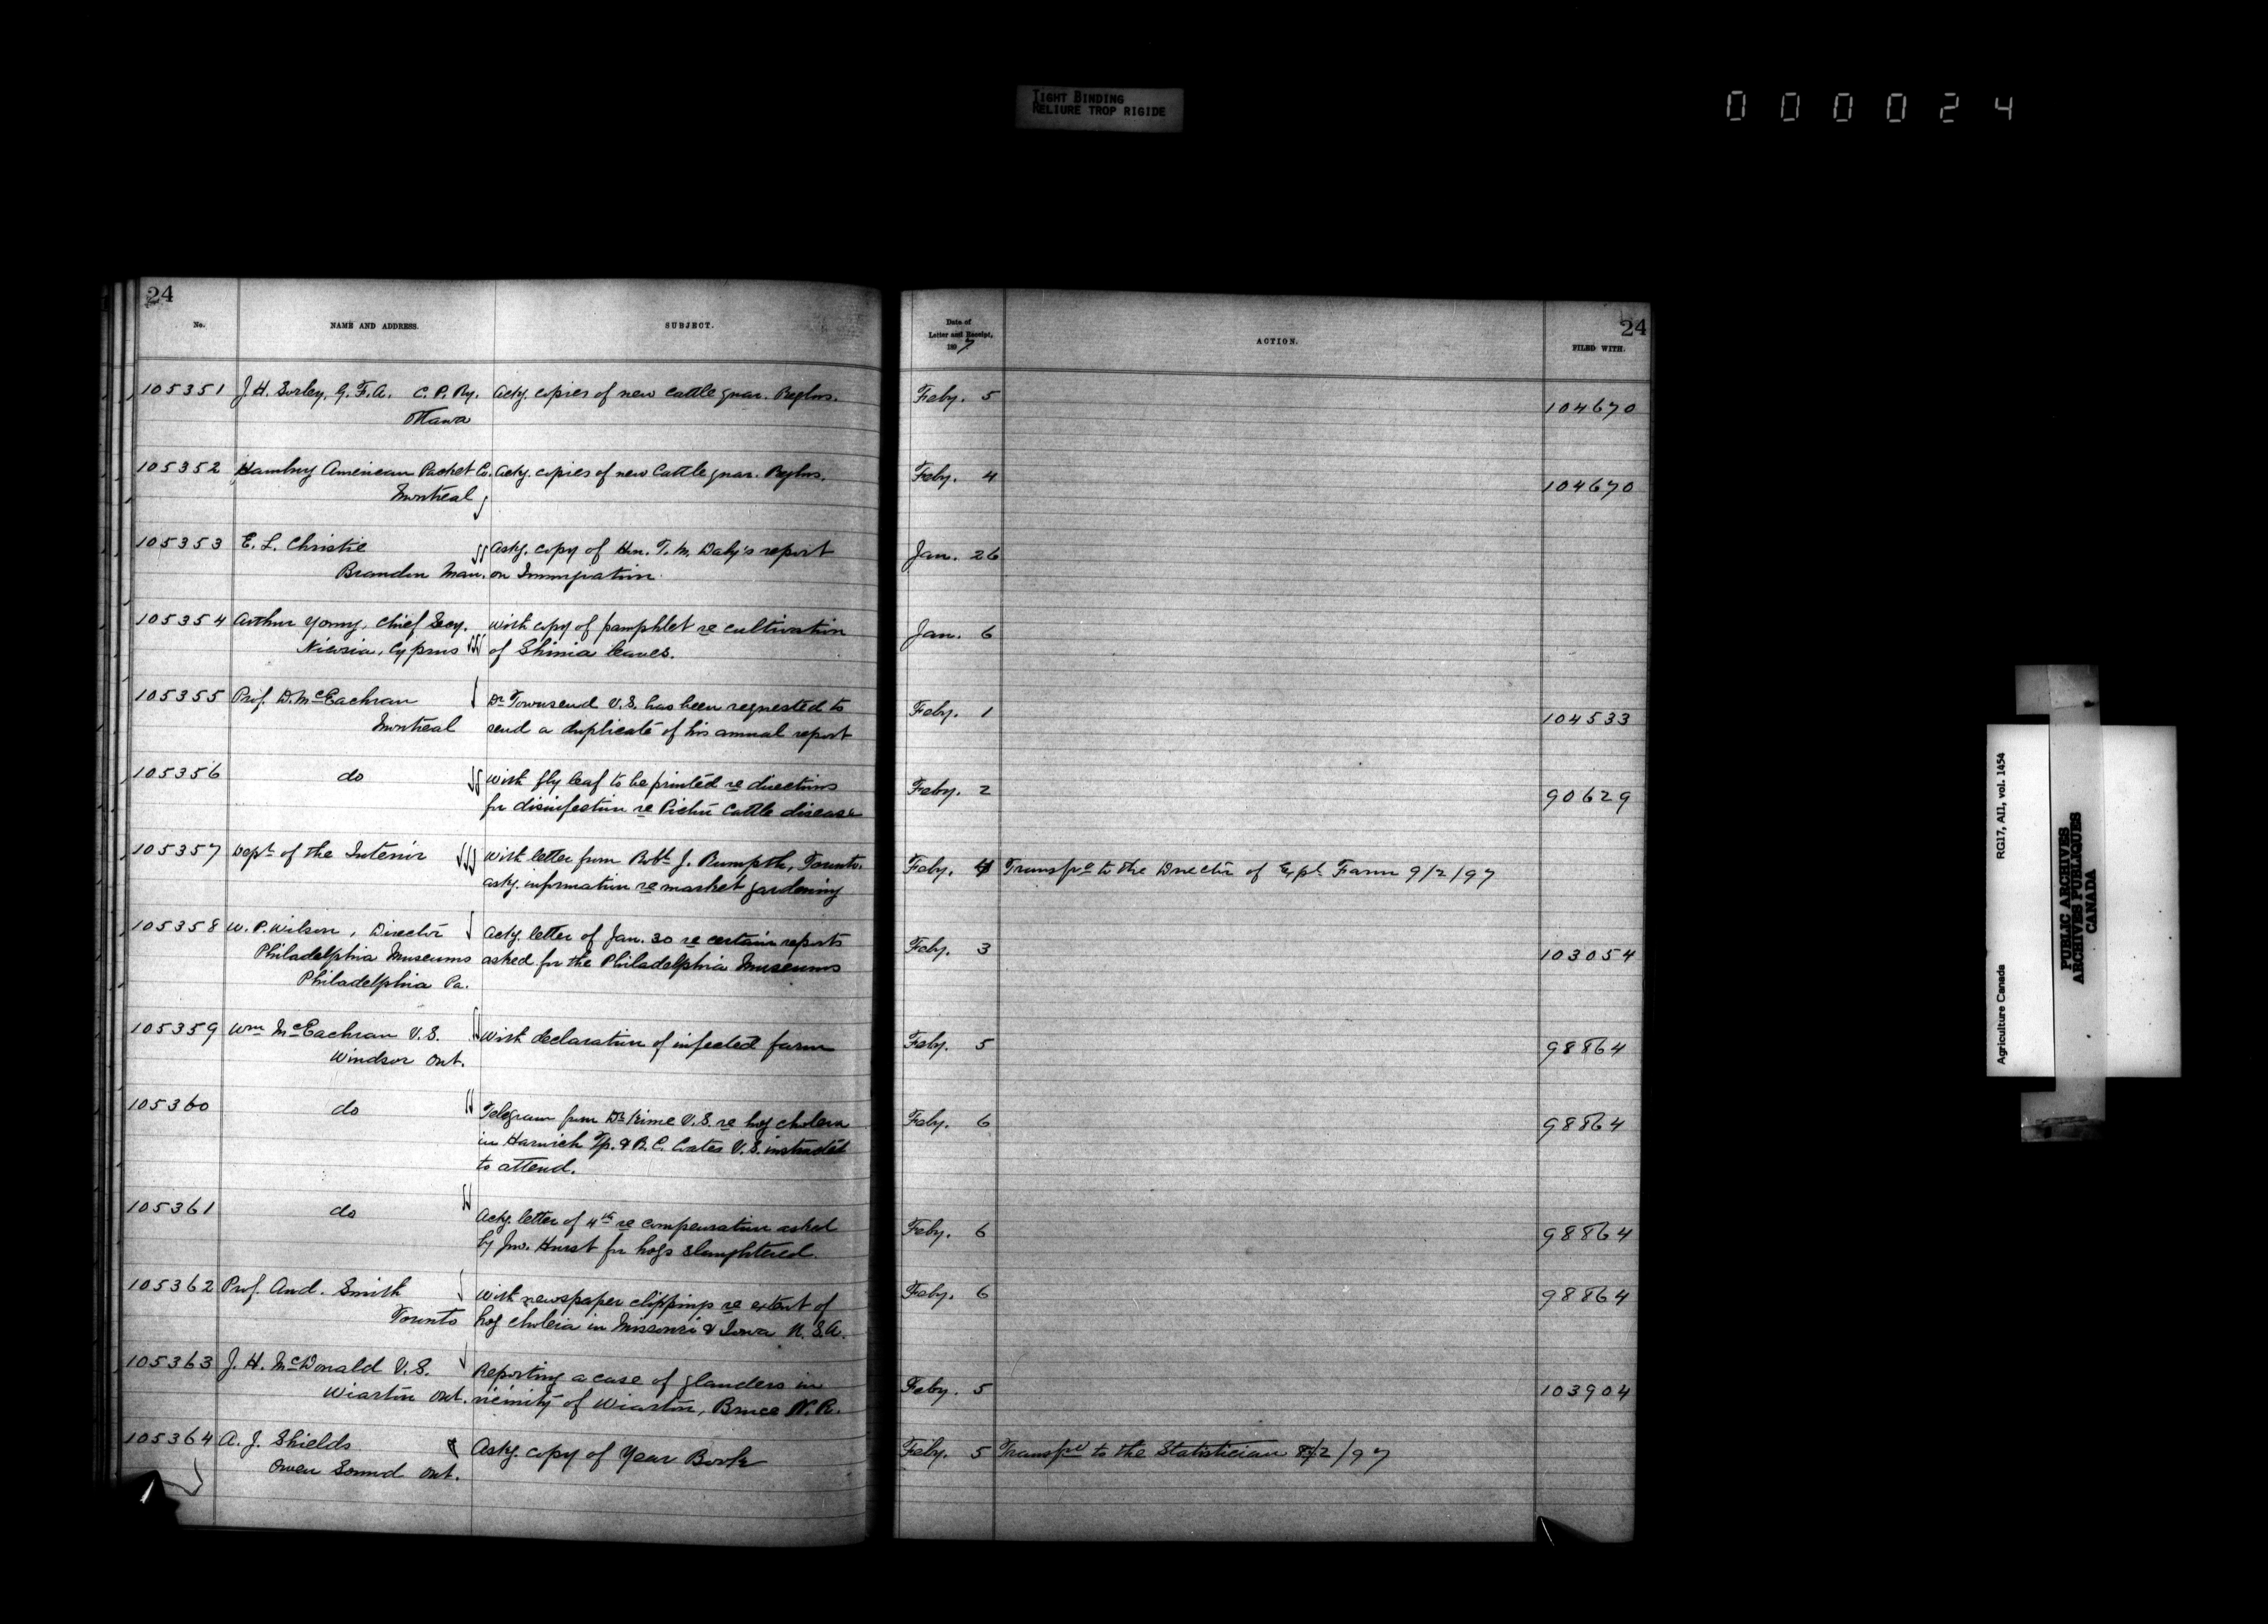 TIGHT BINDING
RELIURE TROP RIGIDE
000024
24
No.
NAME AND ADDRESS.
SUBJECT.
105351 J. H. Sorley, G. F. A. C. P. Ry. Ackg. copies of new cattle quar. Reglns.
Ottawa
105352 Hamburg American Packet Co. Ackg. copies of new Cattle quar. Reglns.
Montreal
105353 E. L. Christie Askg. copy of Hon. T. M. Daly's report
Brandon Man. on Immigration.
105354 Arthur Young, Chief Secy. With copy of pamphlet re cultivation
Nicosia, Cyprus of Shinia leaves.
105355 Prof. D. McEachran Dr Townsend V.S. has been requested to
Montreal send a duplicate of his annual report
105356 do With fly leaf to be printed re directions
for disinfection re Pictou Cattle disease
105357 Dept of the Interior With letter from Robt. J. Toronto.
askg. information re market gardening
105358 W. P. Wilson, Director Ackg. letter of Jan. 30 re certain reports
Philadelphia Museums asked for the Philadelphia Museums
Philadelphia Pa.
105359 Wm McEachran V.S. With declaration of infected farm
Windsor Ont.
105360 do Telegram from Dr V.S. re hog cholera
in Harwich Tp. & B. C. Coates V.S. instructed
to attend.
105361 do Ackg. letter of 4th re compensation asked
by Jno. Hurst for hogs slaughtered.
105362 Prof. And. Smith With newspaper clippings re extent of
Toronto hog cholera in Missouri & Iowa U.S.A.
105363 J. H. McDonald V.S. Reporting a case of glanders in
Wiarton Ont. vicinity of Wiarton, Bruce N. R.
105364 A. J. Shields Askg. copy of Year Book
Owen Sound Ont.
24
Date of
Letter and Receipt,
1897
ACTION.
FILED WITH.
Feby. 5 104670
Feby. 4 104670
Jan. 26
Jan. 6
Feby. 1 104533
Feby. 2 90629
Feby. 4 Transfd to the Director of Expl Farm 9/2/97
Feby. 3 103054
Feby. 5 98864
Feby. 6 98864
Feby. 6 98864
Feby. 6 98864
Feby. 5 103904
Feby. 5 Transfd to the Statistician 8/2/97
Agriculture Canada RG17, AII, vol. 1454
PUBLIC ARCHIVES
ARCHIVES PUBLIQUES
CANADA